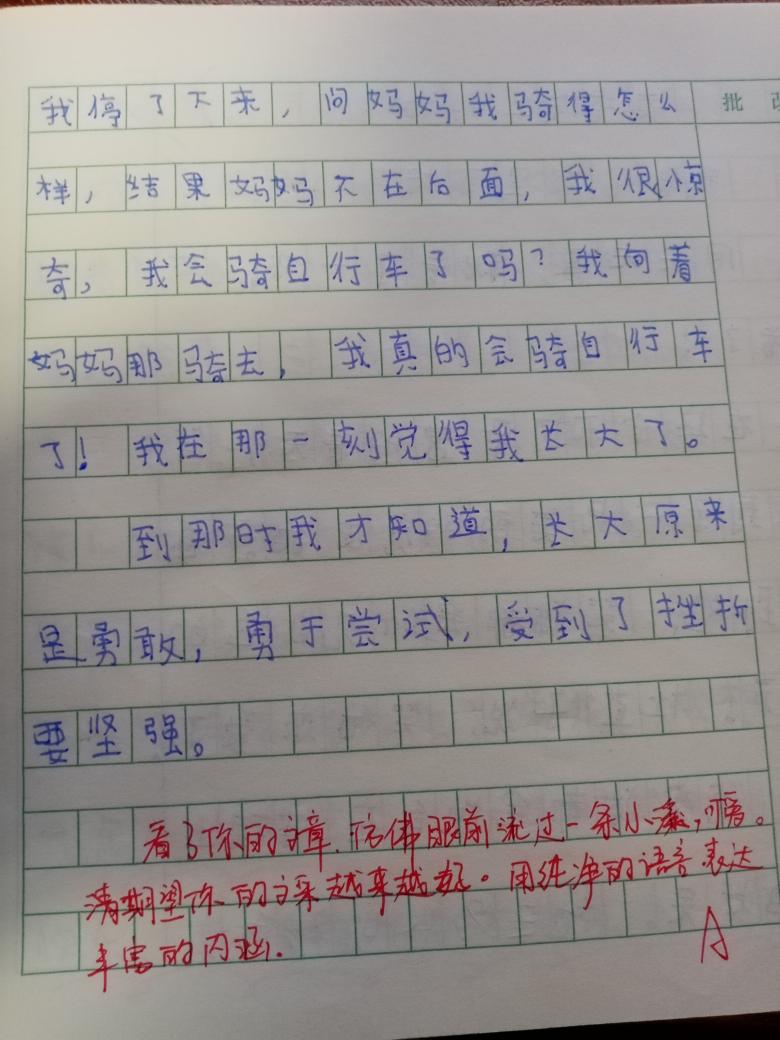 我停了下来，问妈妈我骑得怎么
批改
样，结果妈妈不在后面，我很惊
奇，我会骑自行车了吗？我向着
妈妈那骑去，我真的会骑自行车
了！我在那一刻觉得我长大了。
到那时我才知道，长大原来
是勇敢，勇于尝试，受到了挫折
要坚强。
看了你的文章，仿佛眼前流过一条小溪，可爱。
期望你的文采越来越好。用纯净的语言表达
丰富的内涵.
A